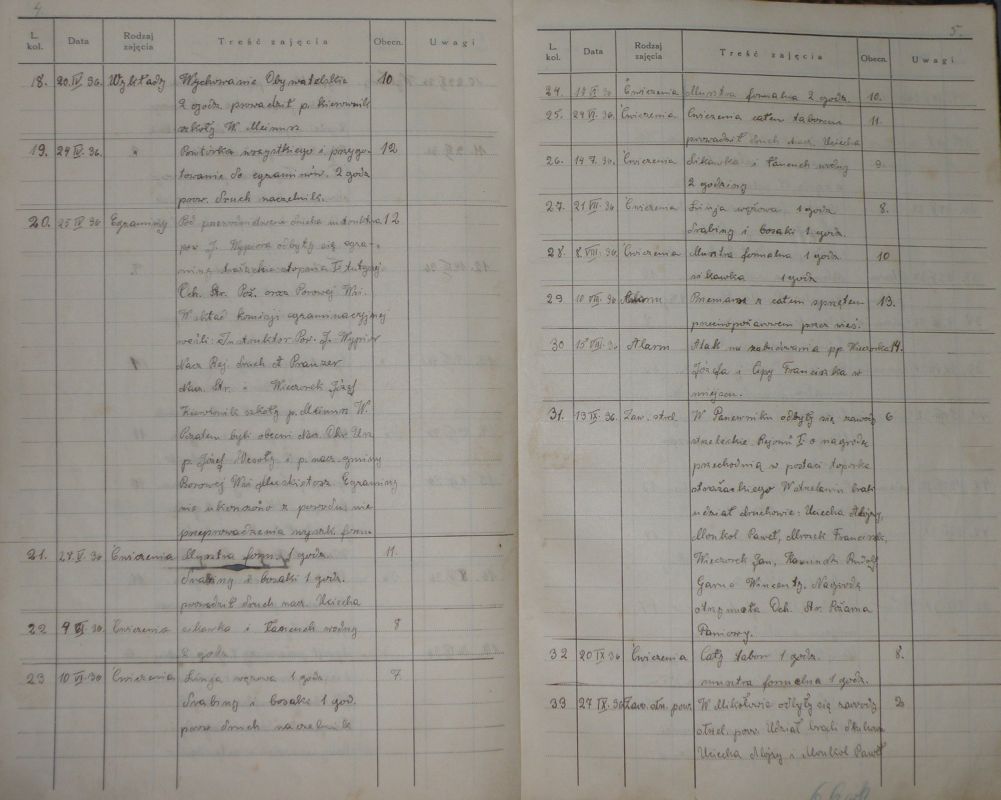 4.
L. kol. Data Rodzaj zajęcia Treść zajęcia Obecn. Uwagi
18. 20.IV 36. Wykłady Wychowanie Obywatelskie 10
2 godz. prowadził p. kierownik
szkoły W. Meinusz
19. 24 IV. 36. " Powtórka wszystkiego i przygo- 12
towanie do egzaminów. 2 godz
prow. druch naczelnik.
20. 25 IV 36 Egzaminy Pod przewodnictwem druha instruktora 12
pow J. Wypiora odbyły się egza-
miny strażackie stopnia I tutejszej
Och. Str. Poż. oraz Borowej Wsi.
W skład komisji egzaminacyjnej
weszli: Instruktor Pow. J. Wypior
Nacz Rej. druch Pranzer
Nacz. Str. " Wieczorek Józef
Kierownik szkoły p. Meinusz W.
Pozatem byli obecni Nacz. Okr. Urz
p. Józef Wesoły i p. nacz. gminy
Borowej Wsi Egzaminy
nie ukończono z powodu nie
przeprowadzenia wyszk. form.
21. 27. V. 36 Ćwiczenia Musztra form. 1 godz. 11.
Drabiny i bosaki 1 godz.
prowadził druch nacz. Uciecha
22 9 VI 36. Ćwiczenia sikawka i łańcuch wodny 8
2 godz.
23 10 VI. 36 Ćwiczenia Linja wężowa 1 godz. 7
Drabiny i bosaki 1 god.
prow. druch naczelnik
5.
L. kol. Data Rodzaj zajęcia Treść zajęcia Obecn. Uwagi
24. 36 Ćwiczenia Musztra formalna 2 godz. 10.
25. 24 VI. 36. Ćwiczenia Ćwiczenia całem taborem 11.
prowadził druch nacz. Uciecha
26. 14 7. 36. Ćwiczenia sikawka i łańcuch wodny 9.
2 godziny
27. 21 VII. 36 Ćwiczenia Linja wężowa 1 godz. 8.
Drabiny i bosaki 1 godz.
28. 8. VIII. 36. Ćwiczenia Musztra formalna 1 godz. 10
sikawka 1 godz
29 10 VIII. 36 Alarm z całem sprzętem 13.
przeciwpożarowem przez wieś.
30 15 VIII. 36 Alarm Atak na zabudowania pp. Wieczorka 14.
Józefa i Cepy Franciszka w
miejscu.
31. 13 IX. 36. Zaw. strzel. W Panewniku odbyły się zawody 6
strzeleckie Rejonu I o nagrodę
przechodnią w postaci toporka
strażackiego W strzelaniu brali
udział druchowie: Uciecha Alojzy,
Monkol Paweł, Mrozek Franciszek,
Wieczorek Jan, Rudolf
Garus Wincenty. Nagrodę
otrzymała Och. Str. Pożarna
Paniowy.
32 20 IX. 36 Ćwiczenia Cały tabor 1 godz. 8.
musztra formalna 1 godz.
33 27 IX. 36 Zaw. str. pow. W Mikołowie odbyły się zawody 2
strzel. pow. Udział brali druhowie
Uciecha Alojzy i Monkol Paweł